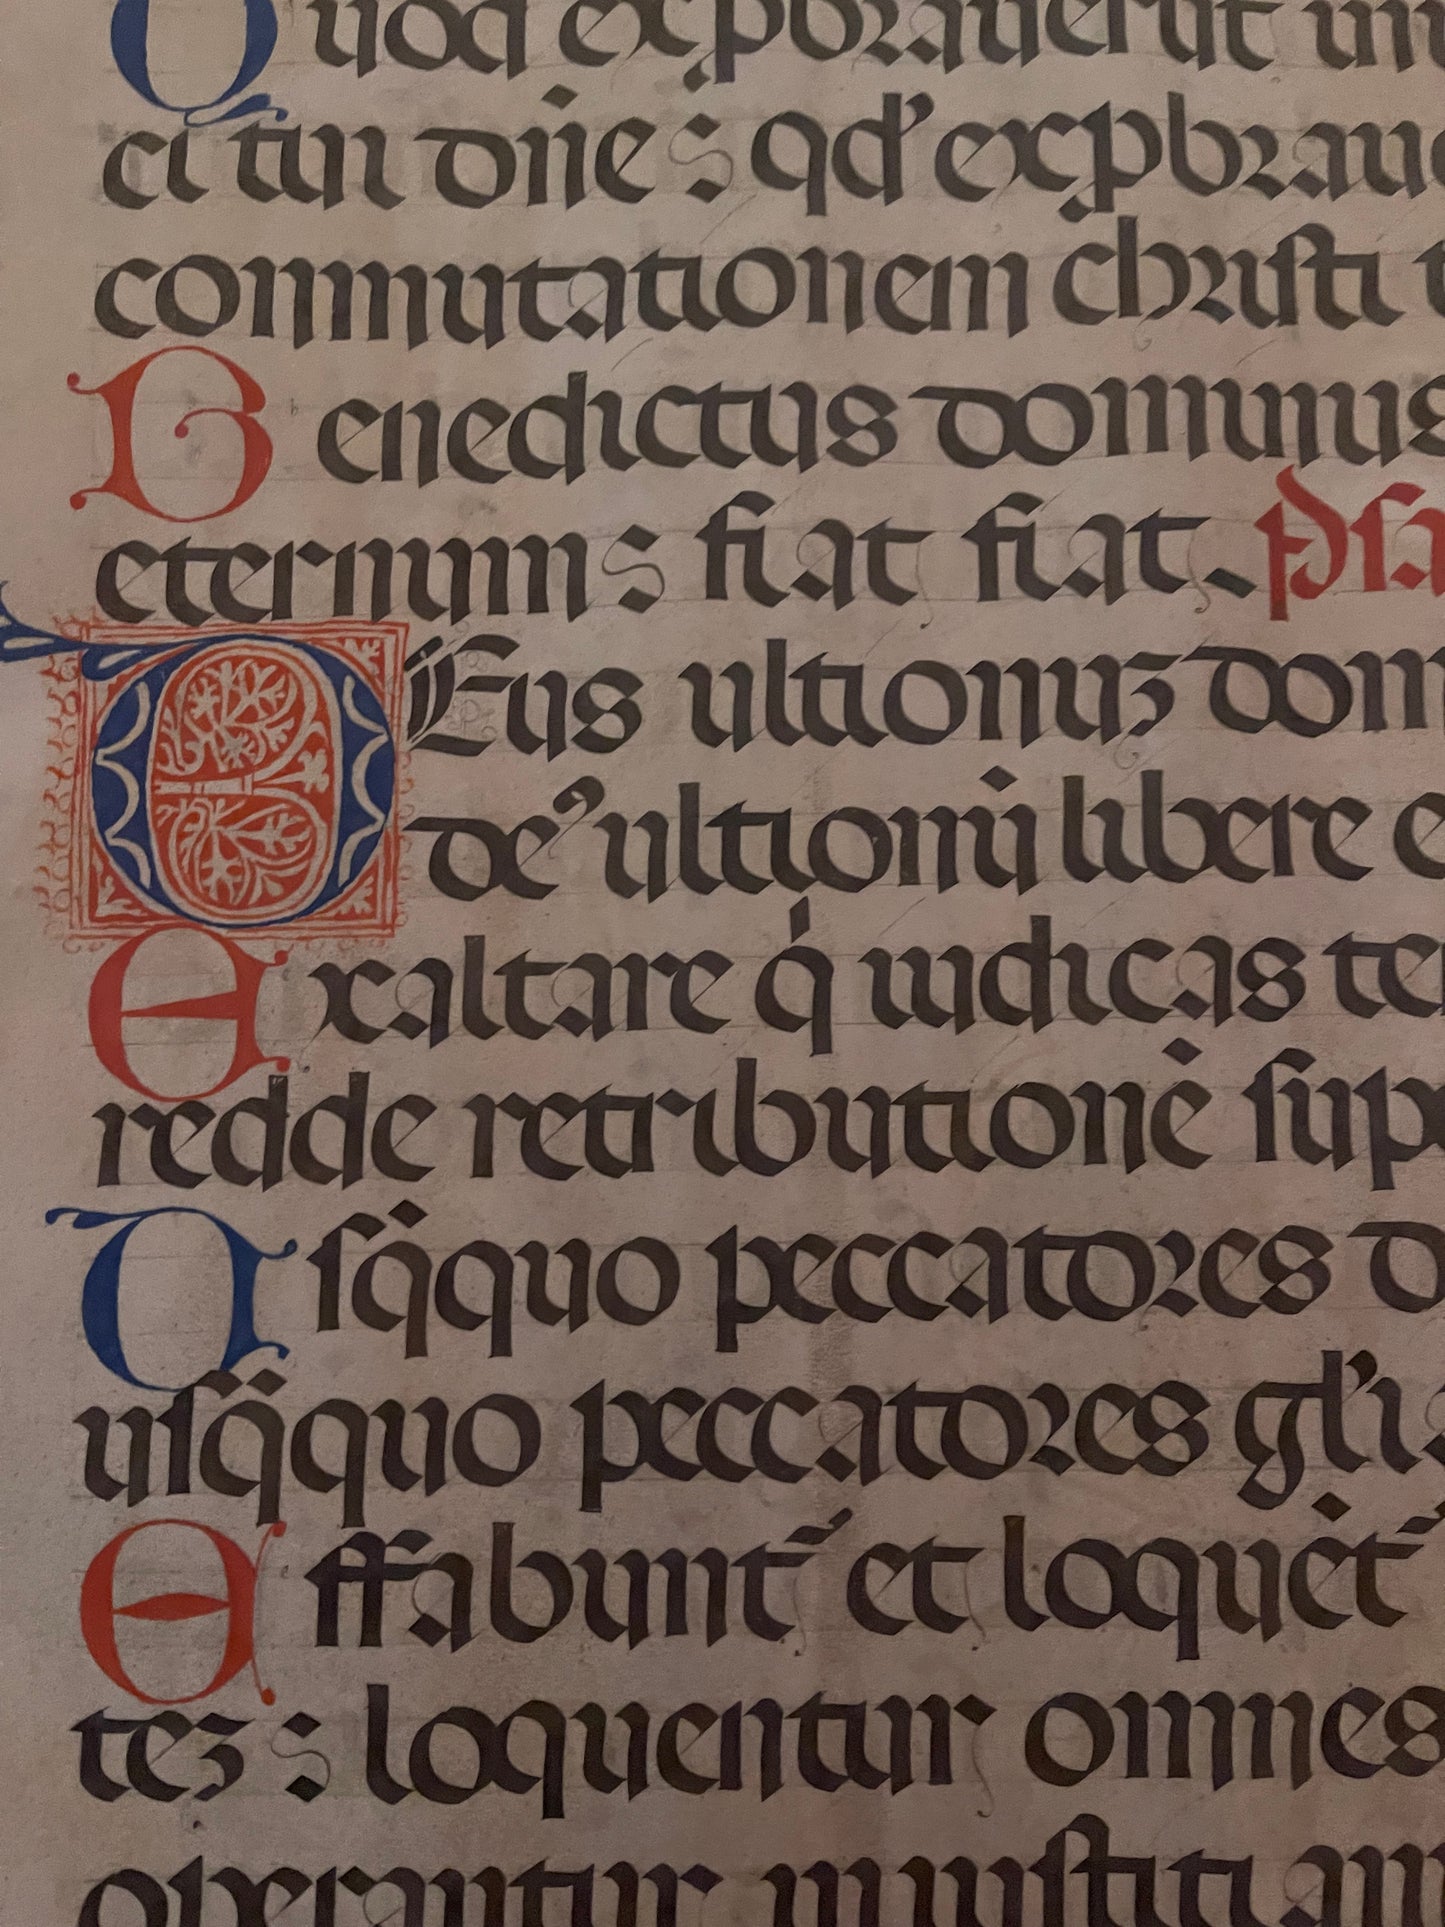 Quoq exprobraverut inimi
ci tui dñe : qd' exprobrave
commutationem christi t
Benedictus dominus
eternum : fiat fiat. Psa
DEus ultionuʒ dom
deʼ ultionũ libere e
Exaltare q̇ iudicas ter
redde retributionē supe
Usq̈quo peccatores d
usq̈quo peccatores gl'i
Effabunt̃ et loquēt̃
teʒ : loquentur omnes
operantur iniustitiam